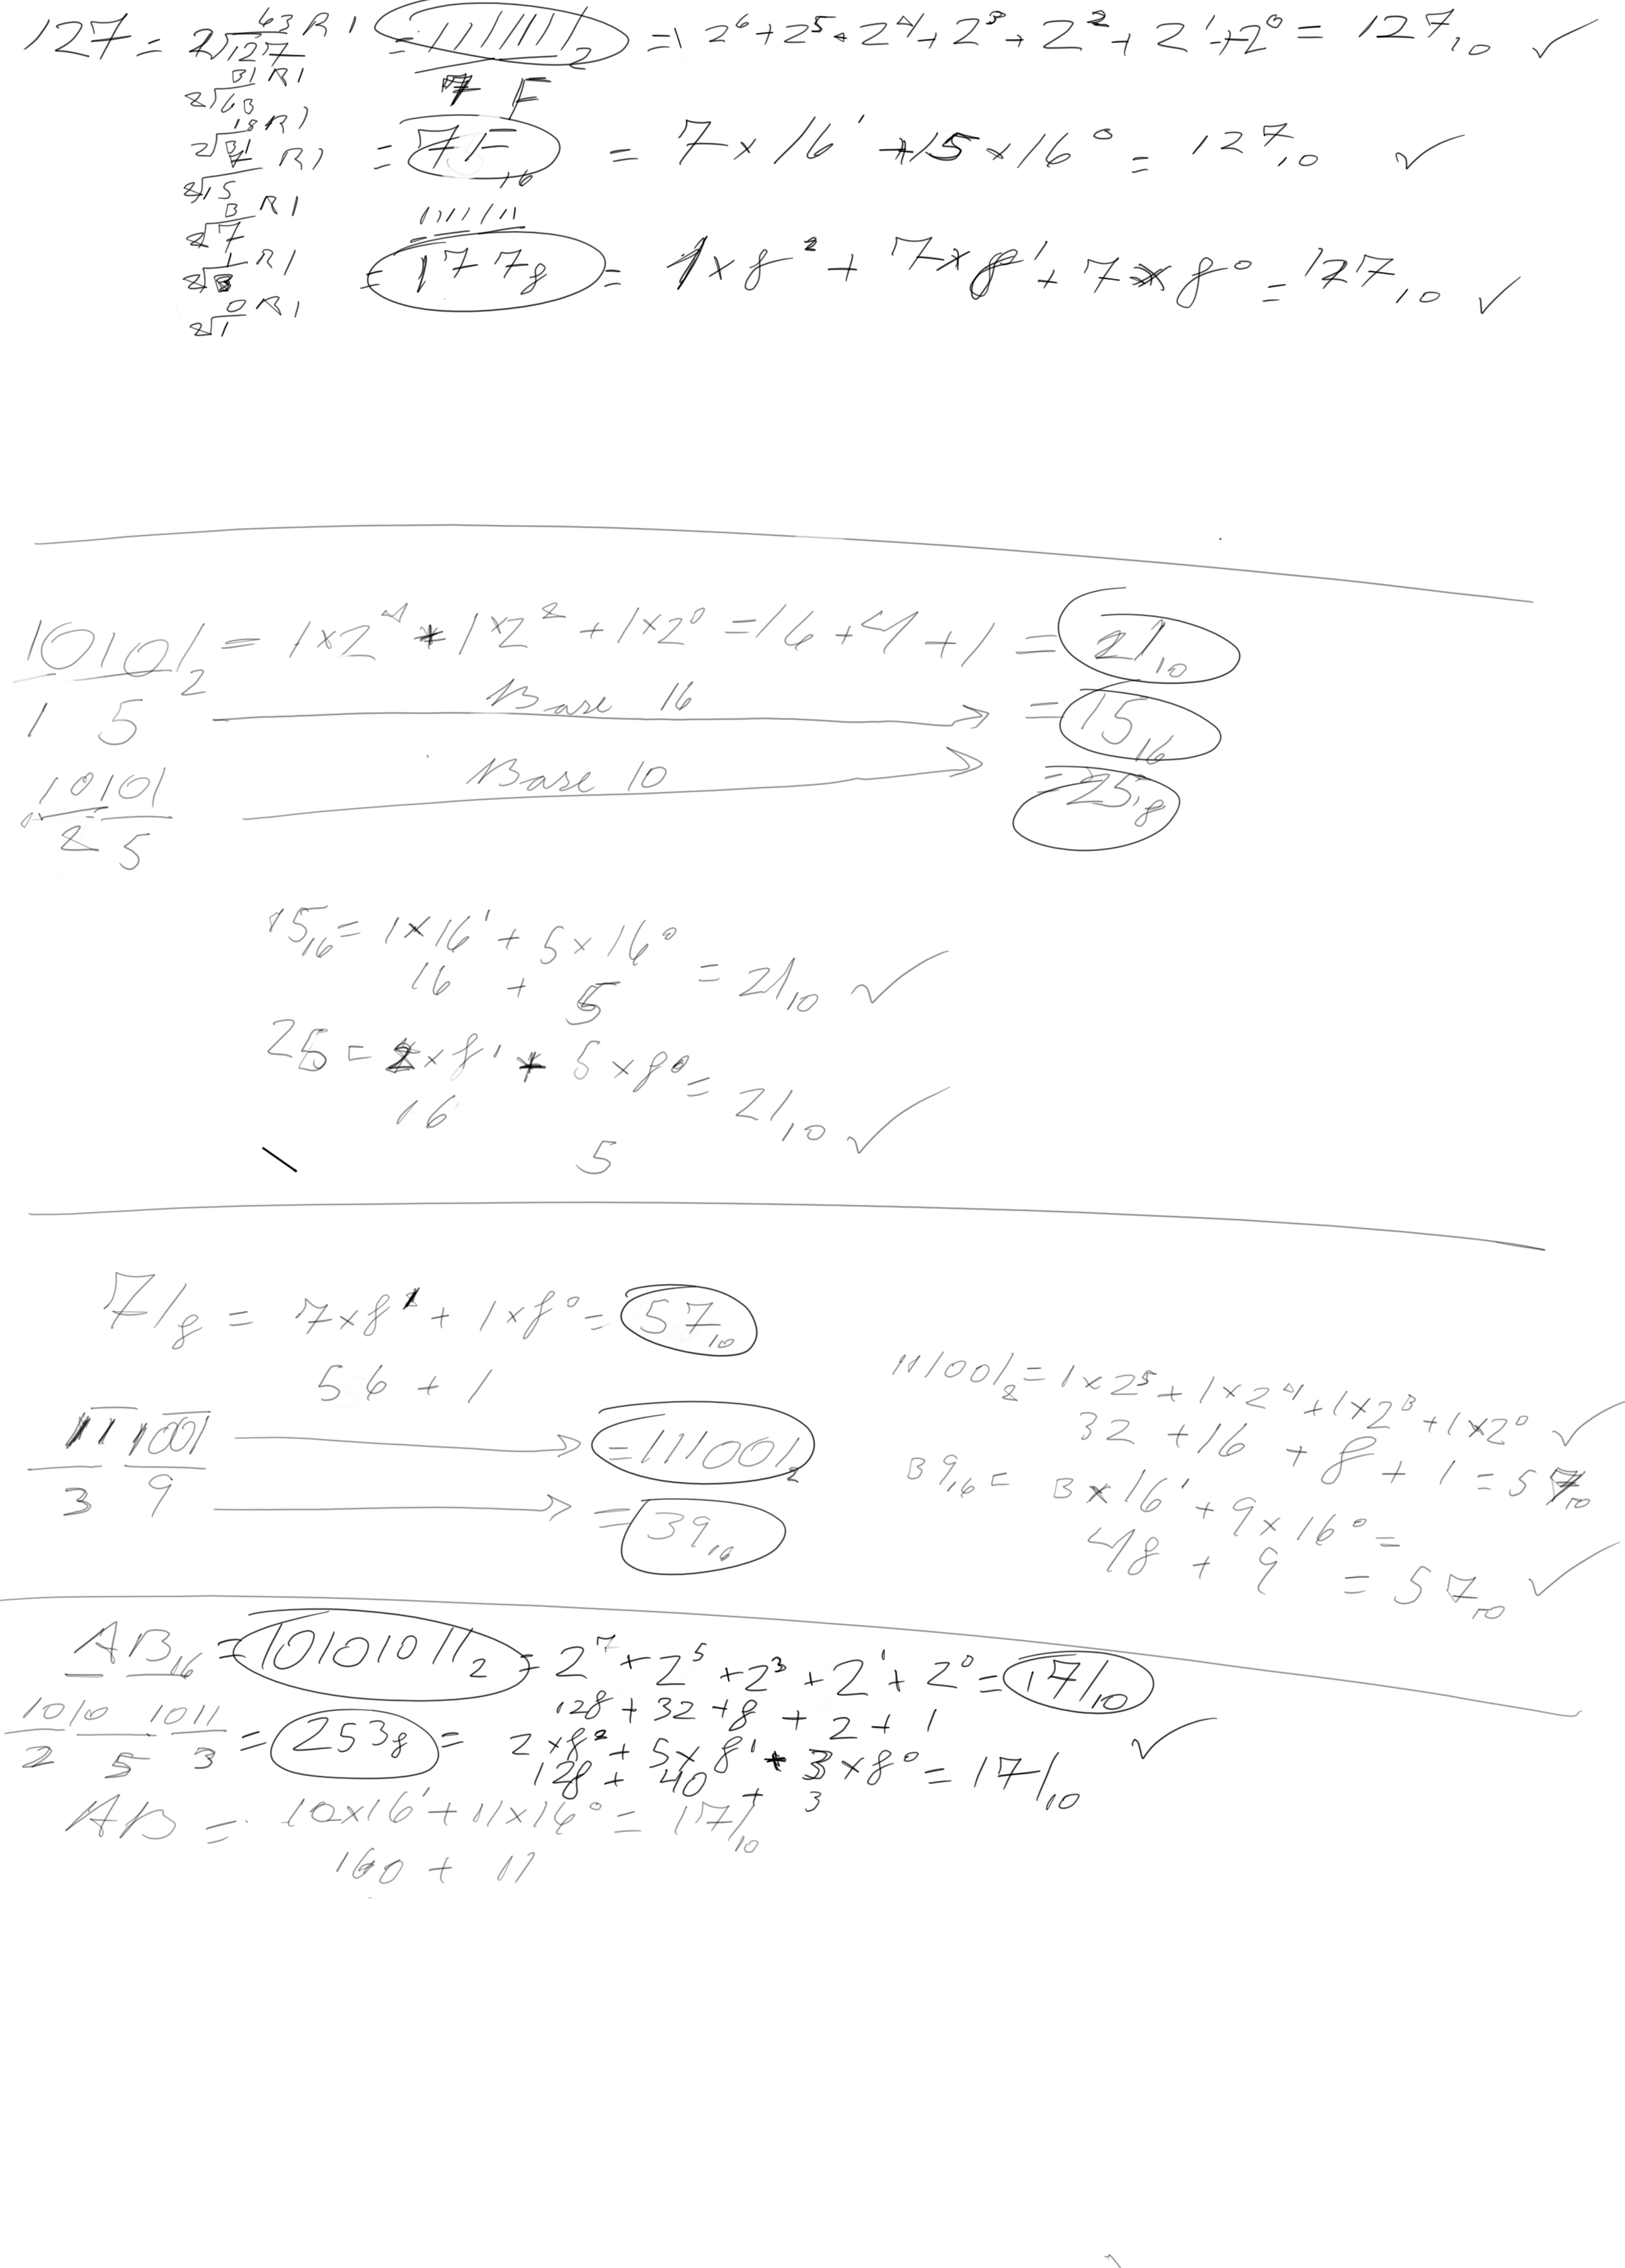 127 = 2√127 63 R1 = 1111111₂ = 1 2⁶ + 2⁵ + 2⁴ + 2³ + 2² + 2¹ + 2⁰ = 127₁₀ ✓
2√63 31 R1
7 F
2√31 15 R1
= 7F₁₆ = 7 × 16¹ + 15 × 16⁰ = 127₁₀ ✓
2√15 7 R1
2√7 3 R1
1111111
2√3 1 R1
= 177₈ = 1 × 8² + 7 × 8¹ + 7 × 8⁰ = 127₁₀ ✓
2√1 0 R1
10101₂ = 1×2⁴ + 1×2² + 1×2⁰ = 16 + 4 + 1 = 21₁₀
1 5 Base 16 → = 15₁₆
10101 Base 10 → = 25₈
2 5
15₁₆ = 1×16¹ + 5×16⁰
16 + 5 = 21₁₀ ✓
25 = 2×8¹ + 5×8⁰ = 21₁₀ ✓
16 5
71₈ = 7×8¹ + 1×8⁰ = 57₁₀
56 + 1
11 1001 → = 111001₂
3 9 → = 39₁₆
111001₂ = 1×2⁵ + 1×2⁴ + 1×2³ + 1×2⁰ ✓
32 + 16 + 8 + 1 = 57₁₀
39₁₆ = 3×16¹ + 9×16⁰ =
48 + 9 = 57₁₀ ✓
AB₁₆ = 10101011₂ = 2⁷ + 2⁵ + 2³ + 2¹ + 2⁰ = 171₁₀
128 + 32 + 8 + 2 + 1
1010 1011 = 253₈ = 2×8² + 5×8¹ + 3×8⁰ = 171₁₀ ✓
2 5 3
128 + 40 + 3
AB = 10×16¹ + 11×16⁰ = 171₁₀
160 + 11